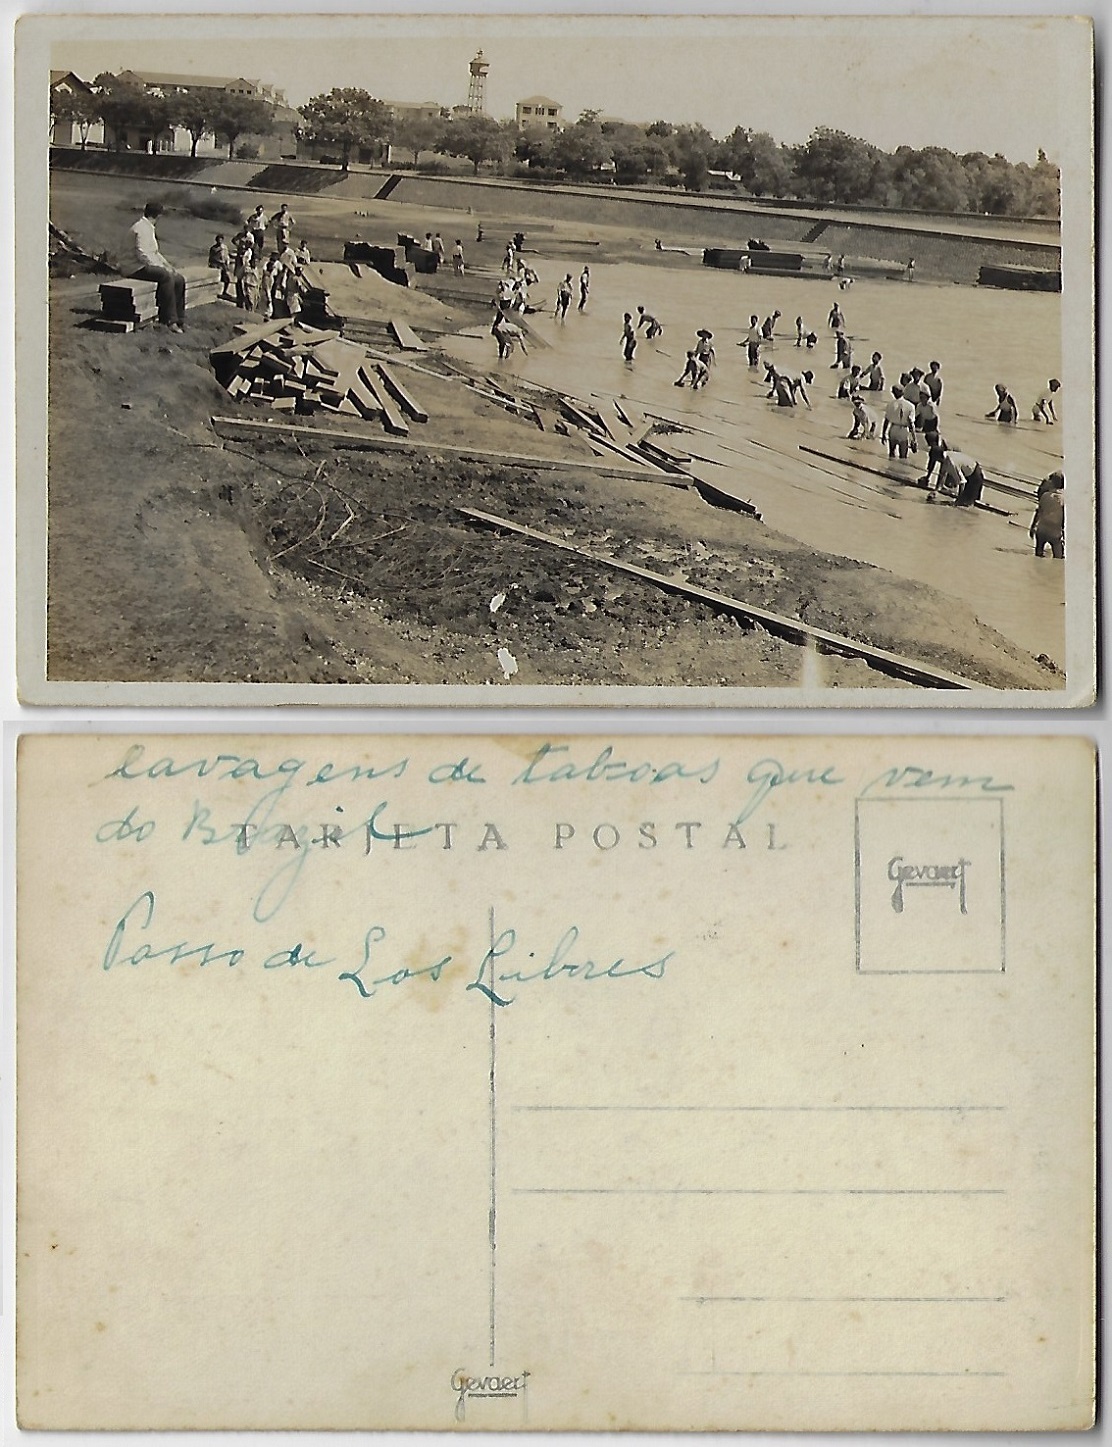 lavagens de taboas que vem
do Brazil
TARJETA POSTAL
Gevaert
Passo de Los Libres
Gevaert